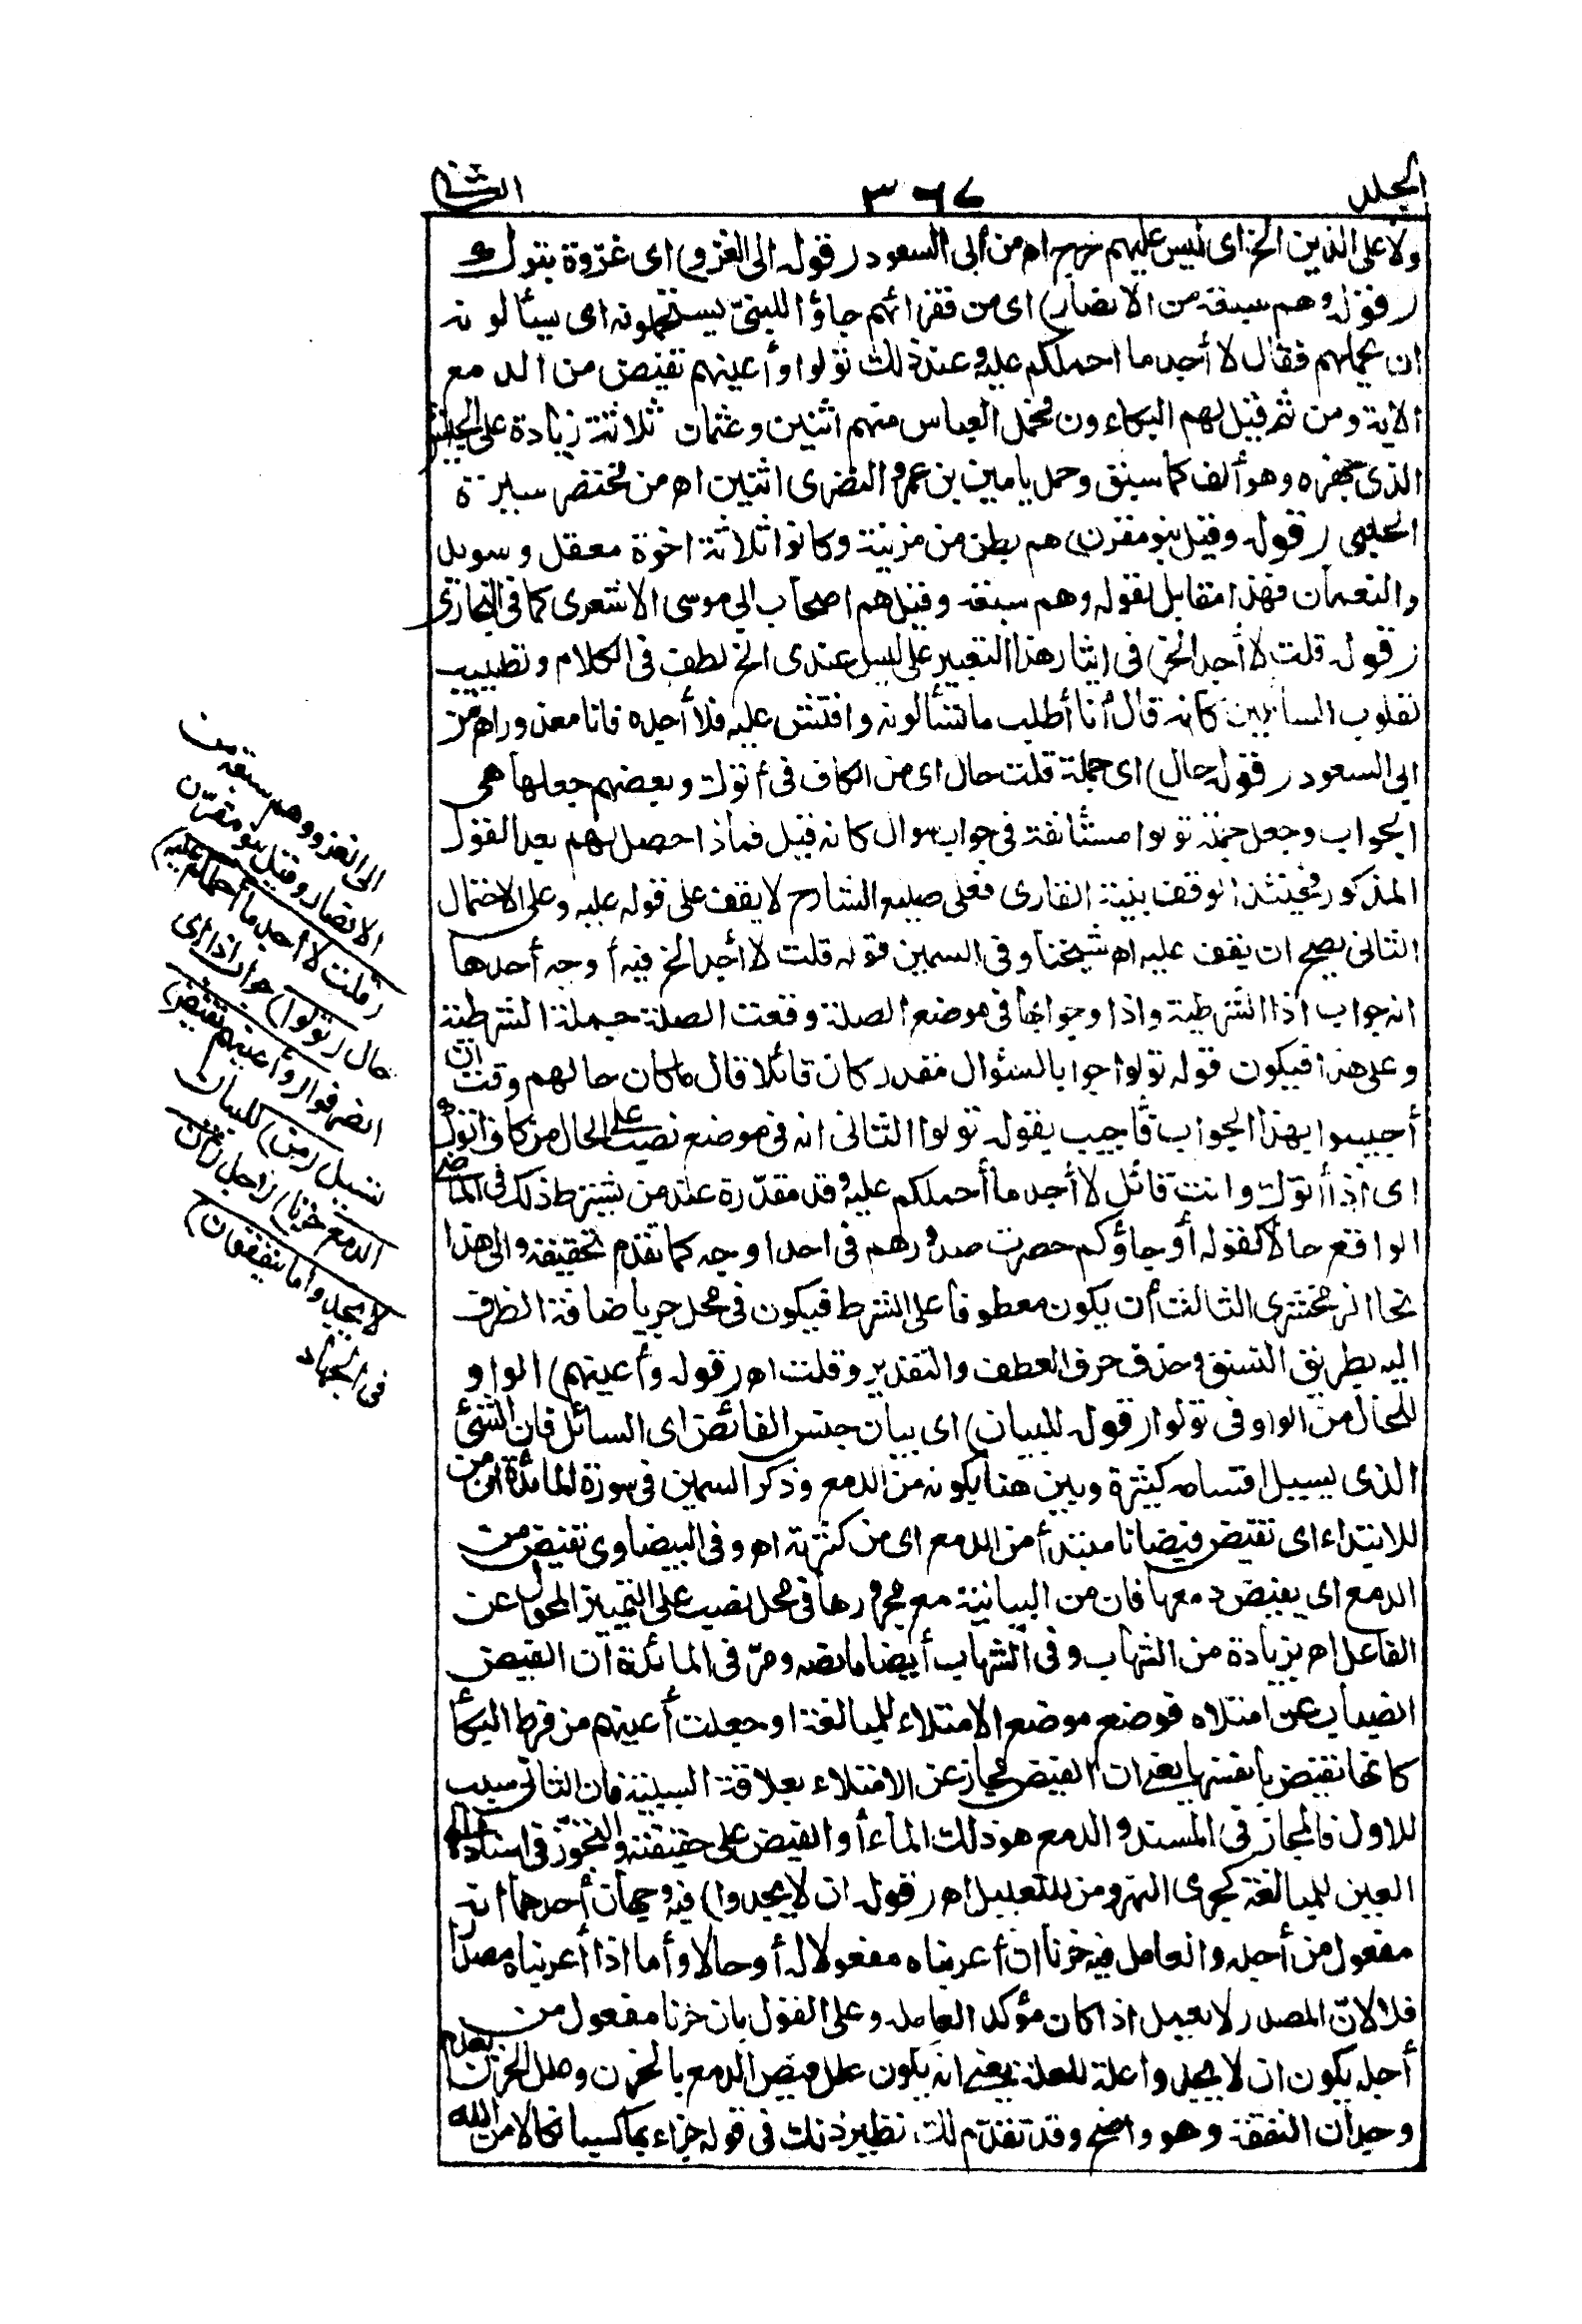 الجلد ٣٦٧ الثانى
ولا على الذين الخ اى ليس عليهم حرج اه من أبى السعود (قوله الى الغزو) اى غزوة تبوك
(قوله وهم سبعة من الانصار) اى من فقرائهم جاؤا للنبىّ يستحملونه اى يسألونه
ان يحملهم فقال لا أجد ما احملكم عليه وعند ذلك تولوا وأعينهم تفيض من الدمع
الاية ومن ثم قيل لهم البكاءون فحمل العباس منهم اثنين وعثمان ثلاثة زيادة على الجيش
الذى جهزه وهو ألف كما سبق وحمل يامين بن عمرو النضرى اثنين اه من مختصر سيرة
الحلبى (قوله وقيل بنو مقرن) هم بطن من مزينة وكانوا ثلاثة اخوة معقل وسويد
والنعمان فهذا مقابل لقوله وهم سبعة وقيل هم اصحاب ابى موسى الاشعرى كما فى البخارى
(قوله قلت لا أجد الخ) فى ايثار هذا التعبير على ليس عندى الخ لطف فى الكلام وتطييب
لقلوب السائلين كانه قال أنا أطلب ما تسألونه وافتش عليه فلا أجده فانا معذور اه من
ابى السعود (قوله حال) اى جملة قلت حال اى من الكاف فى أتوك وبعضهم جعلها هى
الجواب وجعل جملة تولوا مستأنفة فى جواب سوال كانه قيل فماذا حصل لهم بعد القول
المذكور فحينئذ الوقف بنية القارى فعلى صنيع الشارح لا يقف على قوله عليه وعلى الاحتمال
الثانى يصح ان يقف عليه اه شيخنا وفى السمين قوله قلت لا أجد الخ فيه أوجه أحدها
انه جواب اذا الشرطية واذا وجوابها فى موضع الصلة وقعت الصلة جملة الشرطية
وعلى هذا فيكون قوله تولوا جوابا لسؤال مقدر كان قائلا قال ما كان حالهم وقت ان
أجيبوا بهذا الجواب فأجيب بقوله تولوا الثانى انه فى موضع نصب على الحال من كاف اتوك
اى اذا أتوك وانت قائل لا أجد ما أحملكم عليه وقد مقدّرة عند من يشترط ذلك فى الماضى
الواقع حالا كقوله أو جاؤكم حصرت صدورهم فى احد اوجه كما تقدم تحقيقه والى هذا
نحا الزمخشرى الثالث أن يكون معطوفا على الشرط فيكون فى محل جر باضافة الظرف
اليه بطريق النسق وحذف حرف العطف والتقدير وقلت اه (قوله وأعينهم) الواو
للحال من الواو فى تولوا (قوله للبيان) اى بيان جنس الفائض اى السائل فان الشئ
الذى يسيل اقسامه كثيرة وبين هنا بكونه من الدمع وذكر السمين فى سورة المائدة ان من
للابتداء اى تفيض فيضانا مبتدأ من الدمع اى من كثرته اه وفى البيضاوى تفيض من
الدمع اى يفيض دمعها فان من البيانية مع مجرورها فى محل نصب على التمييز المحول عن
الفاعل اه بزيادة من الشهاب وفى الشهاب أيضا ما نصه ومرّ فى المائدة ان الفيض
انصباب عن امتلاه فوضع موضع الامتلاء للمبالغة او جعلت أعينهم من فرط البكأ
كانها تفيض بأنفسها يعنى ان الفيض مجاز عن الامتلاء بعلاقة السببية فان الثانى سبب
للاول فالمجاز فى المسند والدمع هو ذلك الماء أو الفيض على حقيقته والتجوّز فى اسناده الى
العين للمبالغة كجرى النهر ومن للتعليل اه (قوله ان لا يجدوا) فيه وجهان أحدهما انه
مفعول من أجله والعامل فيه حزنا ان أعربناه مفعولا له أو حالا وأما اذا أعربناه مصدرا
فلا لانّ المصدر لا يعمل اذا كان مؤكد العامله وعلى القول بان حزنا مفعول من
أجله يكون ان لا يجدوا علة للعلة يعنى انه يكون علل فيض الدمع بالحزن وعلل الحزن بعدم
وجدان النفقة وهو واضح وقد تقدّم لك نظير ذلك فى قوله جزاء بما كسبا نكالا من الله
الى الغزو وهم سبعة من
الانصار وقيل بنو مقرّن
(قلت لا أجد ما أحملكم عليه)
حال (تولوا) جواب اذا اى
انصرفوا (وأعينهم تفيض)
تسيل (من) للبيان
الدمع حزنا) لاجل ان
لا يجدوا ما ينفقون)
فى الجهاد